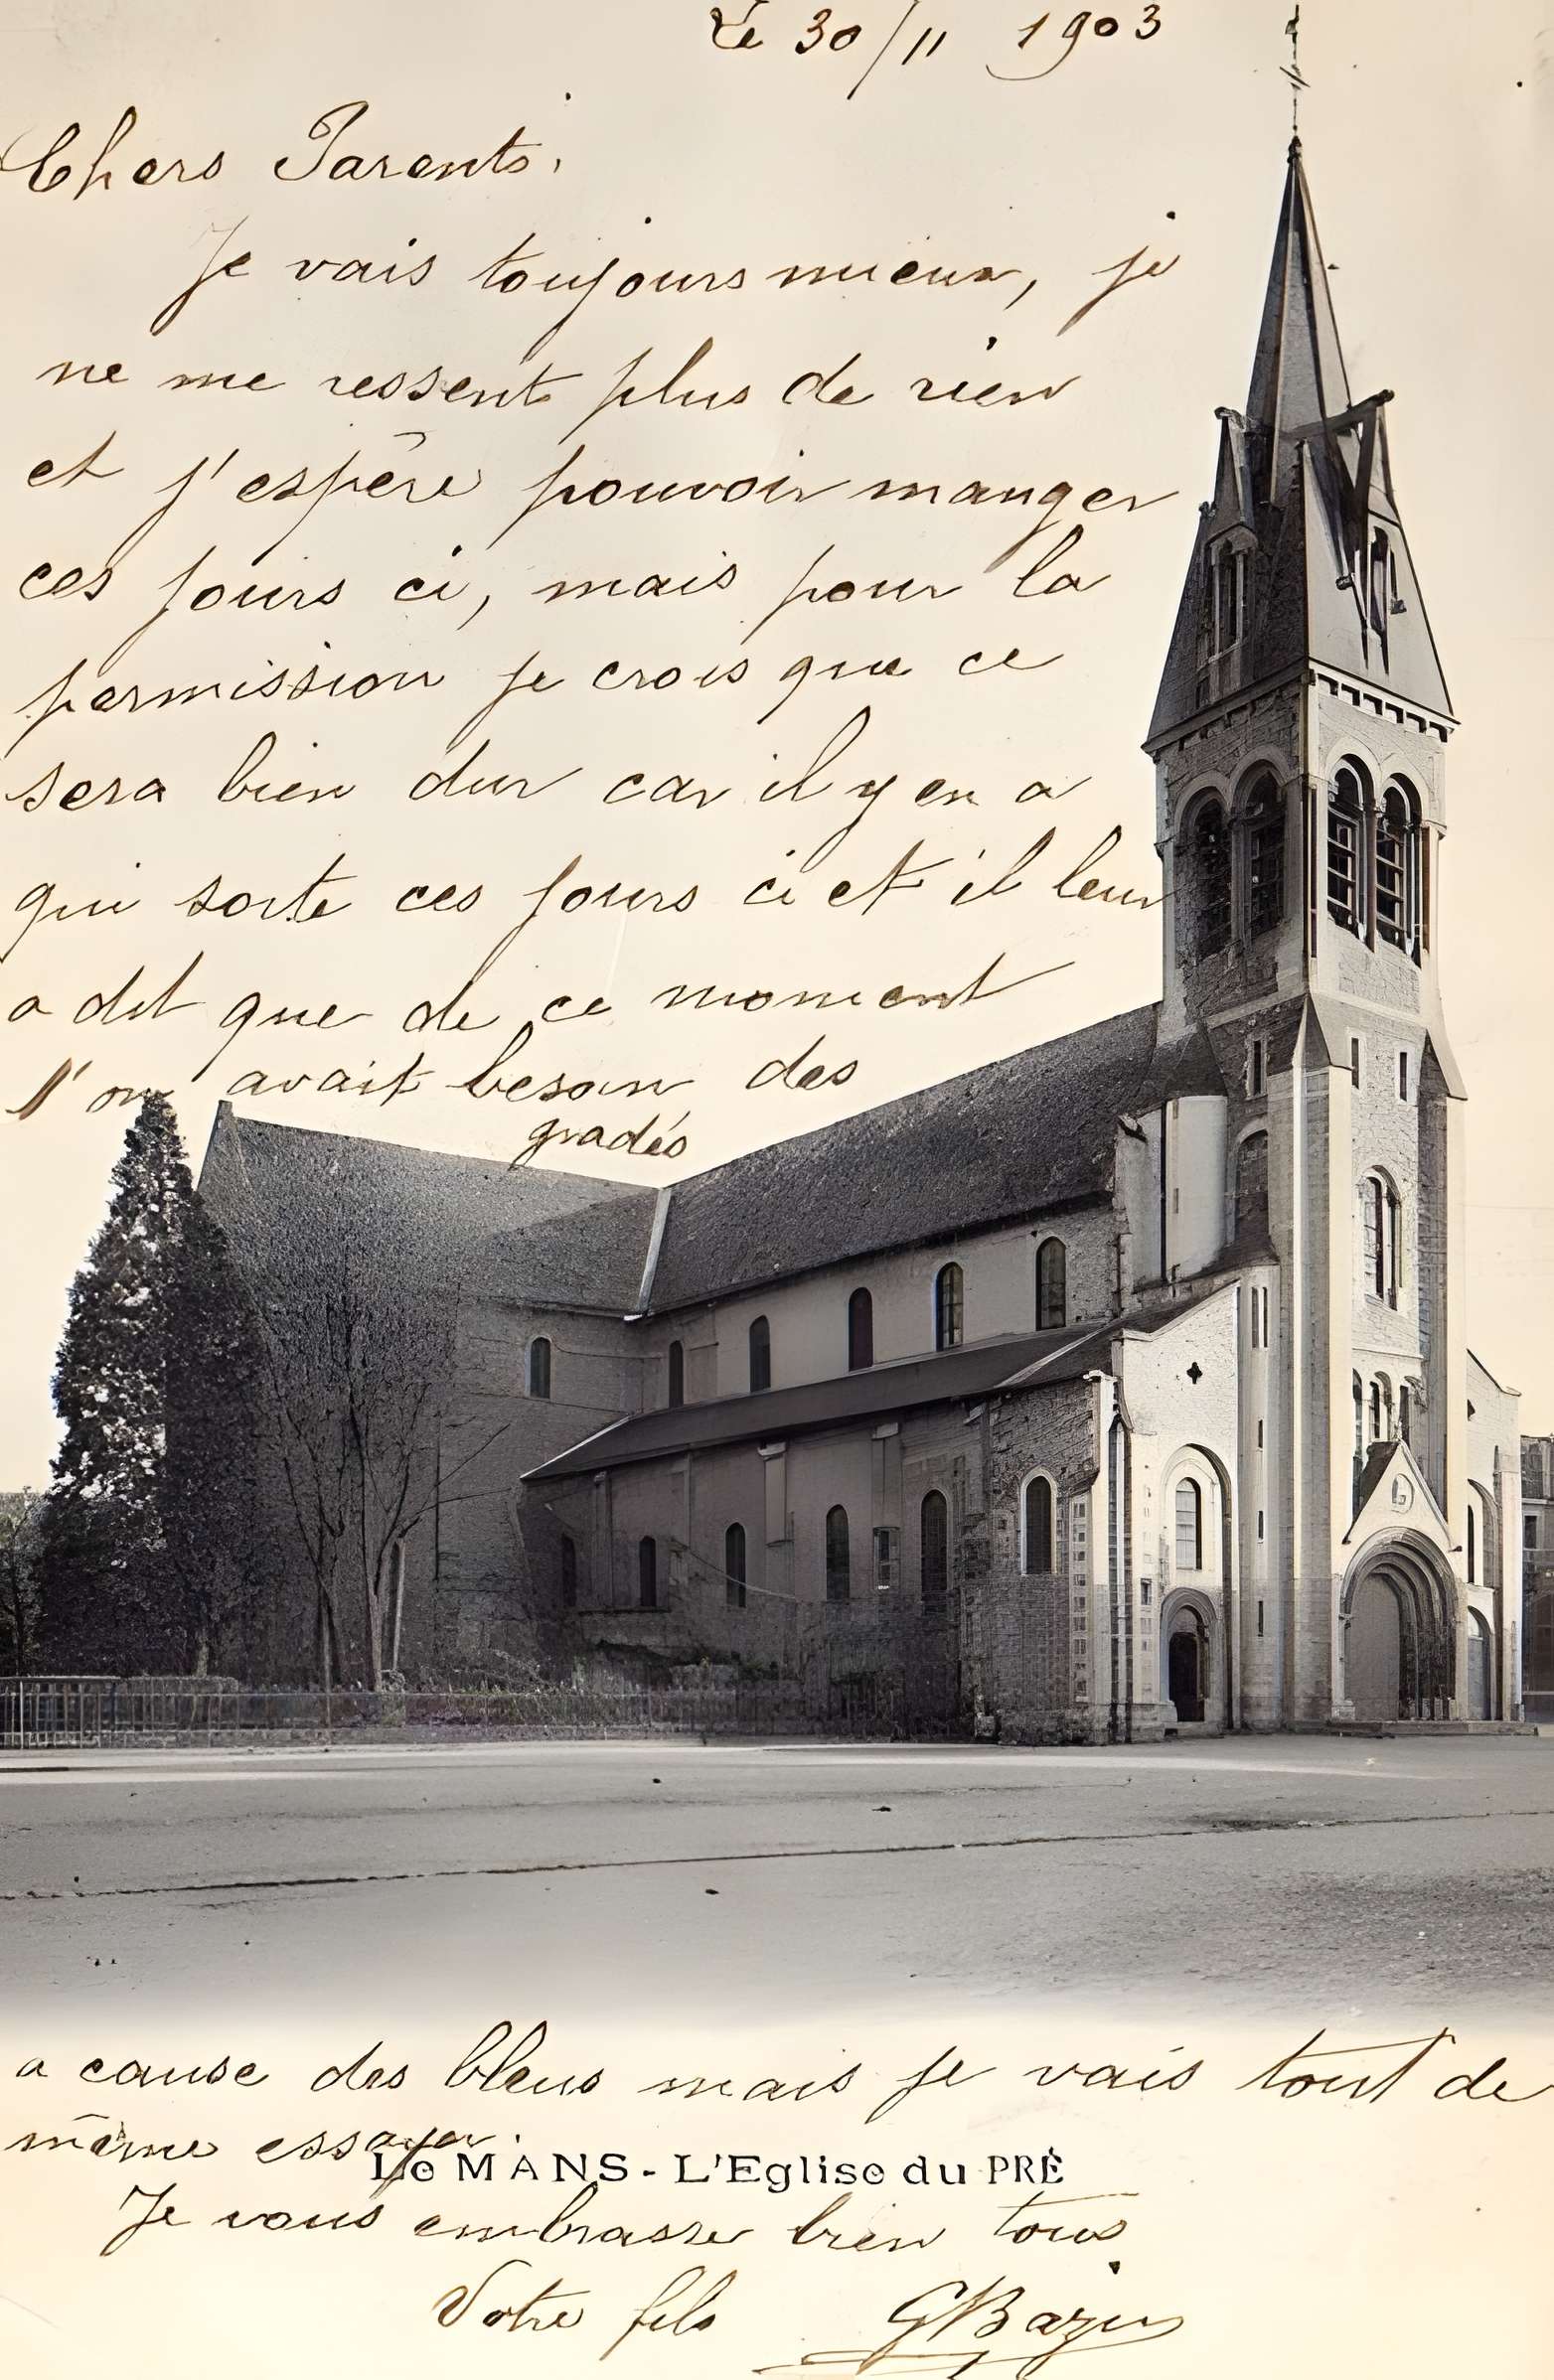 Le 30/11 1903
Chers Parents,
Je vais toujours mieux, je
ne me ressent plus de rien
et j'espère pouvoir manger
ces jours ci, mais pour la
permission je crois que ce
sera bien dur car il y en a
qui sorte ces jours ci et il leur
a dit que de ce moment
l'on avait besoin des
gradés
a cause des bleus mais je vais tout de
même essayer.
Le MANS - L'Eglise du PRÉ
Je vous embrasse bien tous
Votre fils GBazin